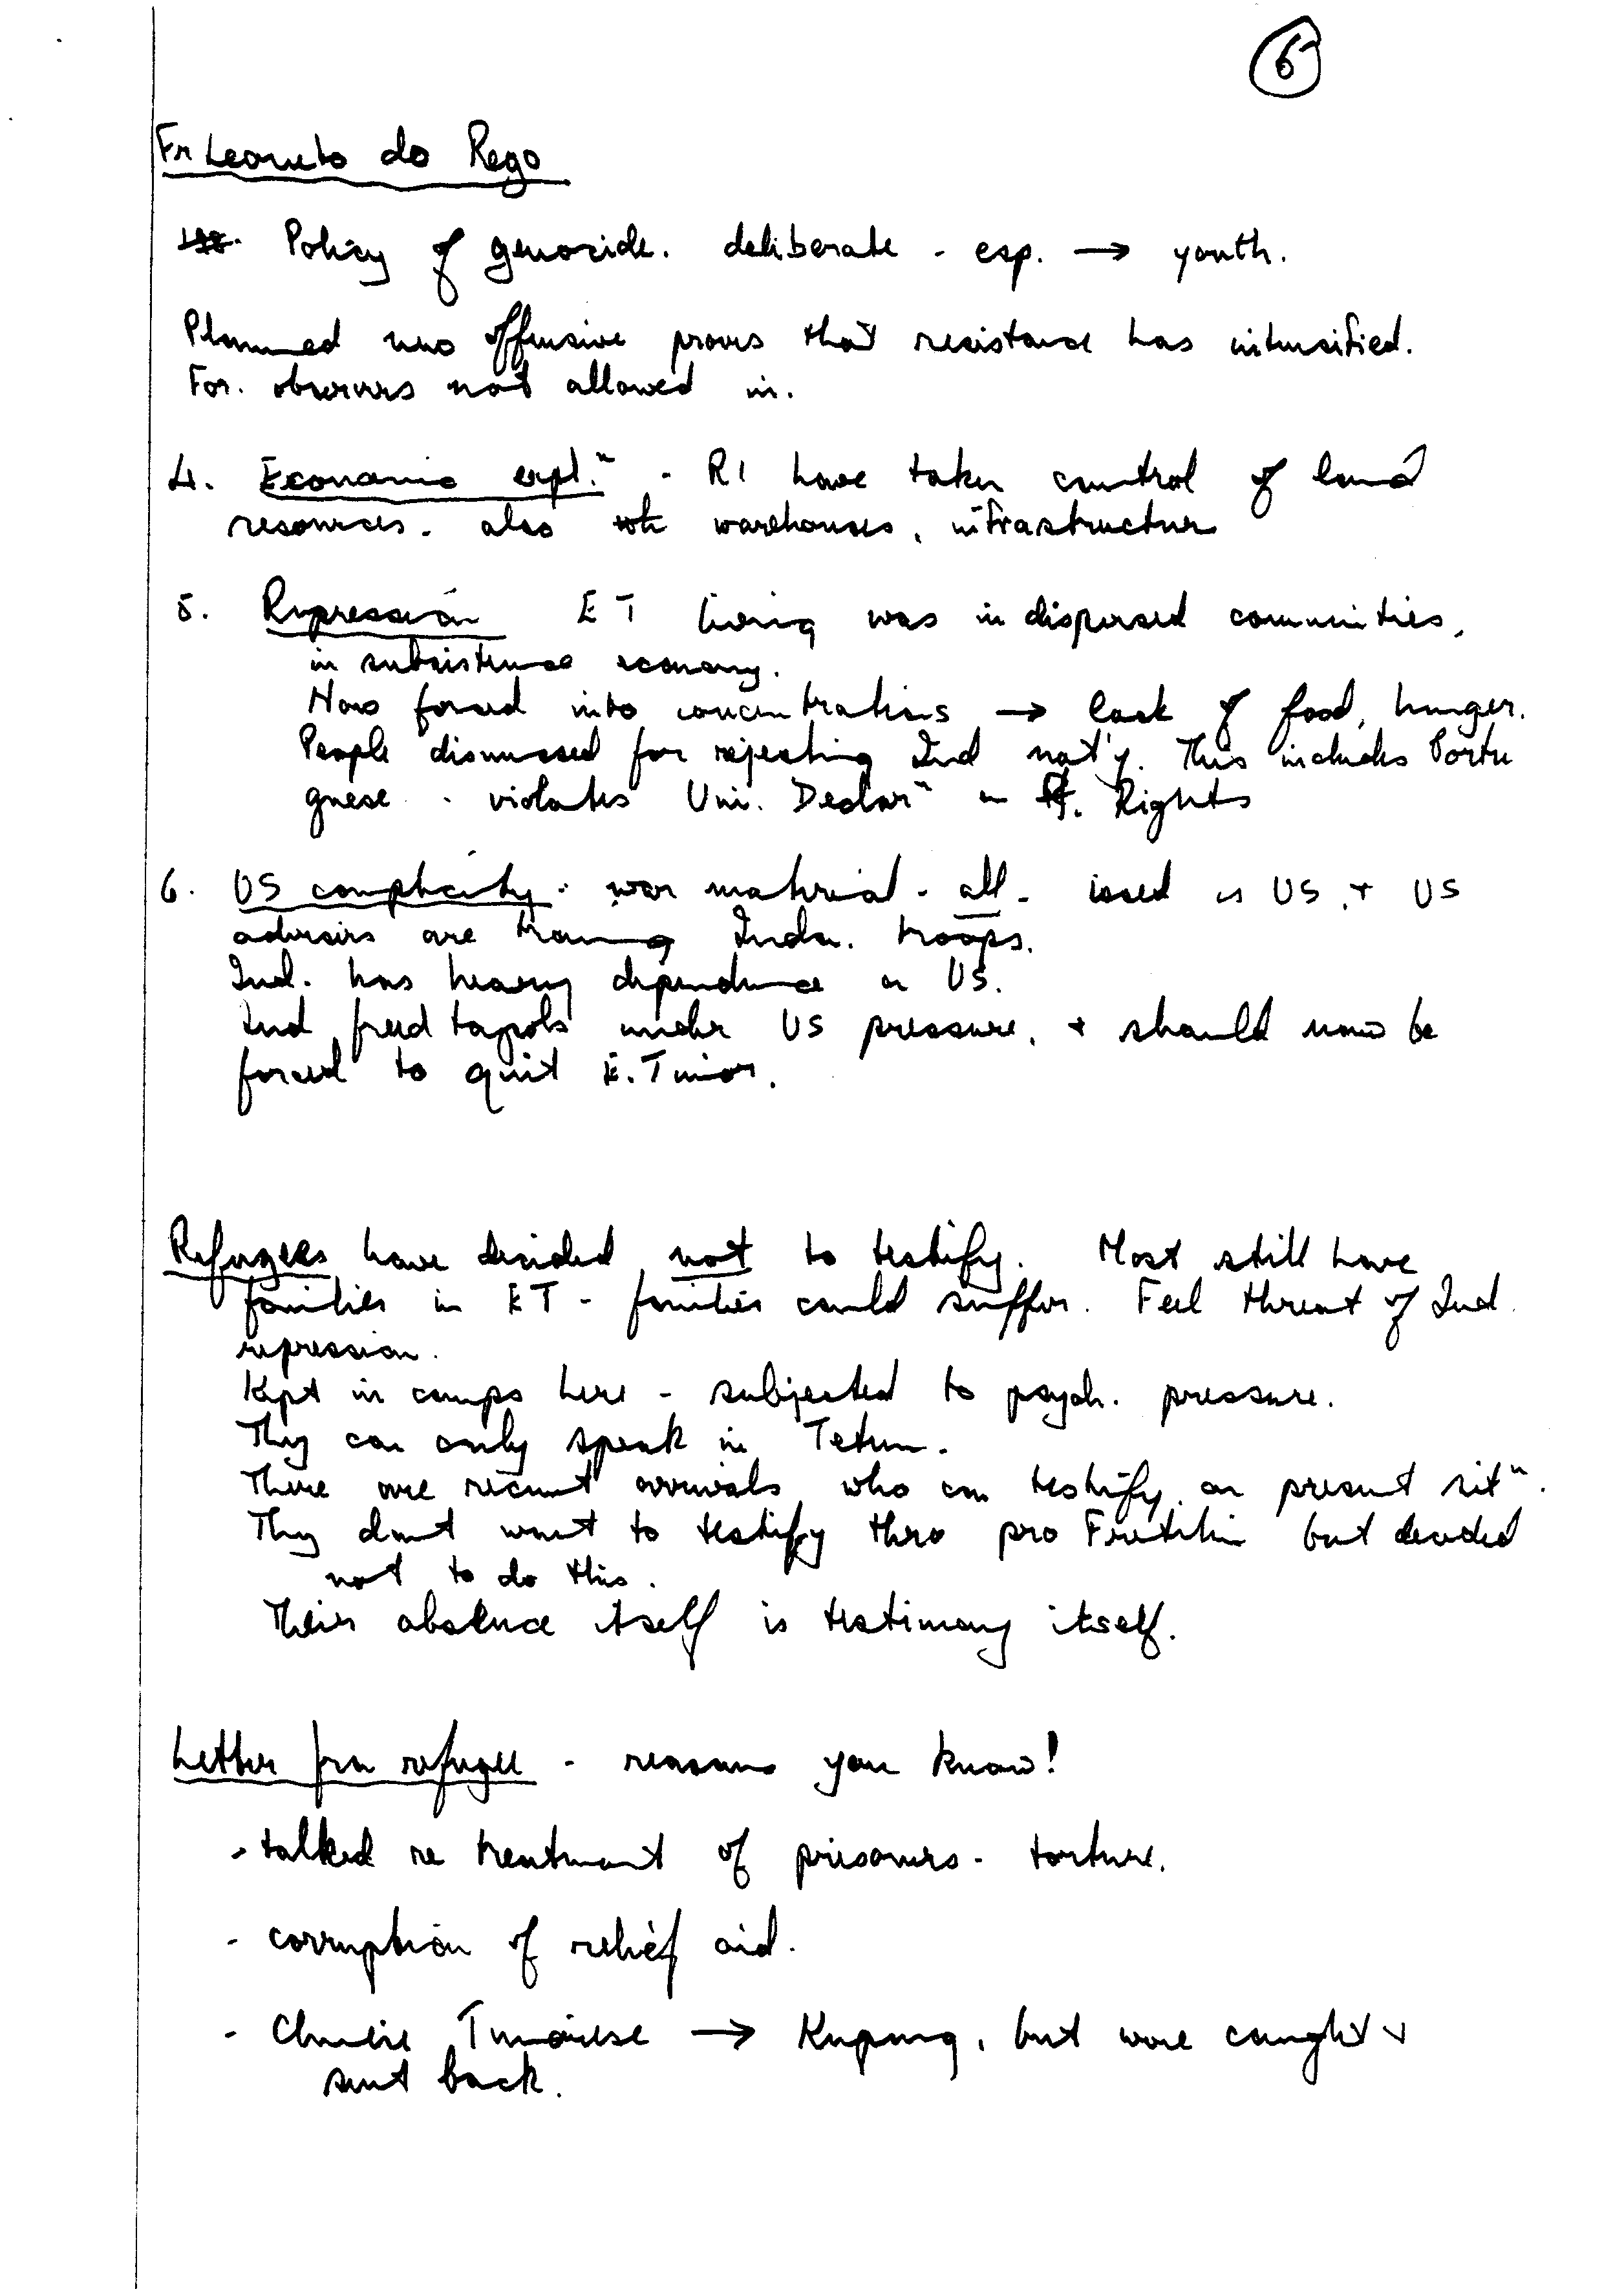 6
Fr Leoneto do Rego
Policy of genocide. deliberate - esp. → youth.
Planned new offensive proves that resistance has intensified.
For. observers not allowed in.
4. Economic expl.n - RI have taken control of land
resources. also warehouses, infrastructure
5. Repression ET living was in dispersed communities,
in subsistence economy.
Now forced into concentrations → lack of food, hunger.
People dismissed for rejecting Ind nat'y. This includes Portu
guese - violates Uni. Declarn on Rights
6. US complicity - war material - all - used is US, + US
advisers are training Indon. troops.
Ind. has heavy dependence on US.
Ind freed tapols under US pressure, + should now be
forced to quit E. Timor.
Refugees have decided not to testify. Most still have
families in ET - families could suffer. Feel threat of Ind.
repression.
Kept in camps here - subjected to psych. pressure.
They can only speak in Tetum.
There are recent arrivals who can testify on present sitn.
They don't want to testify thro pro Fretilin but decided
not to do this.
Their absence itself is testimony itself.
Letter from refugee - reasons you know!
- talked re treatment of prisoners - torture.
- corruption of relief aid.
- Chinese Timorese → Kupang, but were caught +
sent back.